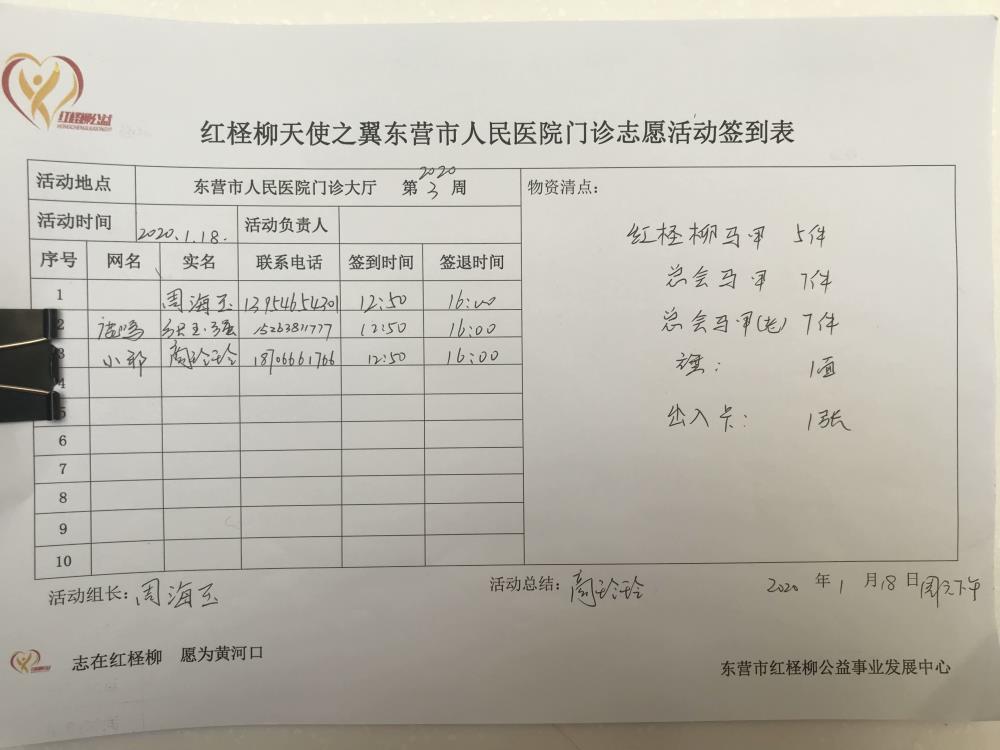 红柽柳公益
红柽柳天使之翼东营市人民医院门诊志愿活动签到表
活动地点 东营市人民医院门诊大厅 第 2020 3 周
活动时间 2020.1.18. 活动负责人
序号 网名 实名 联系电话 签到时间 签退时间
1 周海玉 13954654301 12:50 16:00
2 玉强 15263811777 12:50 16:00
3 小郭 商玲玲 18706661766 12:50 16:00
4
5
6
7
8
9
10
物资清点：
红柽柳马甲 5件
总会马甲 7件
总会马甲(老) 7件
1面
出入卡: 1张
活动组长: 周海玉
活动总结: 商玲玲
2020 年 1 月 18 日 周六下午
志在红柽柳 愿为黄河口
东营市红柽柳公益事业发展中心